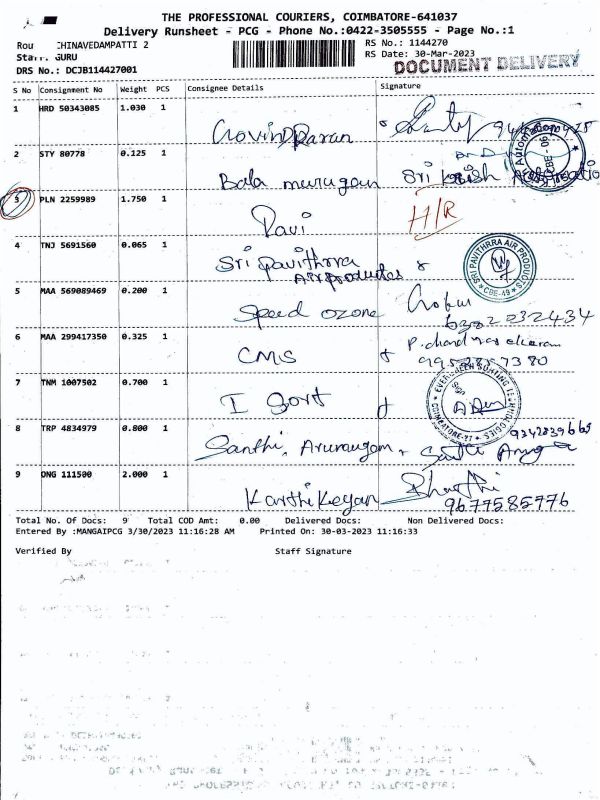 THE PROFESSIONAL COURIERS, COIMBATORE-641037
Delivery Runsheet - PCG - Phone No.:0422-3505555 - Page No.:1
Rou CHINAVEDAMPATTI 2
RS No.: 1144270
Staff: GURU
RS Date: 30-Mar-2023
DRS No.: DCJB114427001
DOCUMENT DELIVERY
S No Consignment No Weight PCS Consignee Details Signature
1 HRD 50343085 1.030 1
2 STY 80778 0.125 1
Bala murugan Sri
3 PLN 2259989 1.750 1
Ravi H/R
4 TNJ 5691560 0.065 1
Sri Pavithrra
Airproductes
SRI PAVITHRRA AIR PRODUCTS CBE-49
5 MAA 569089469 0.200 1
Speed ozone Gokul
6382232434
6 MAA 299417350 0.325 1
CMS
7 TNM 1007502 0.700 1
I Sort
EVERGREEN SORTING TECHNOLOGIES COIMBATORE-27
8 TRP 4834979 0.800 1
Santhi, Arumugam
9 DNG 111500 2.000 1
Karthikeyan
9677585776
Total No. Of Docs: 9 Total COD Amt: 0.00 Delivered Docs: Non Delivered Docs:
Entered By :MANGAIPCG 3/30/2023 11:16:28 AM Printed On: 30-03-2023 11:16:33
Verified By Staff Signature